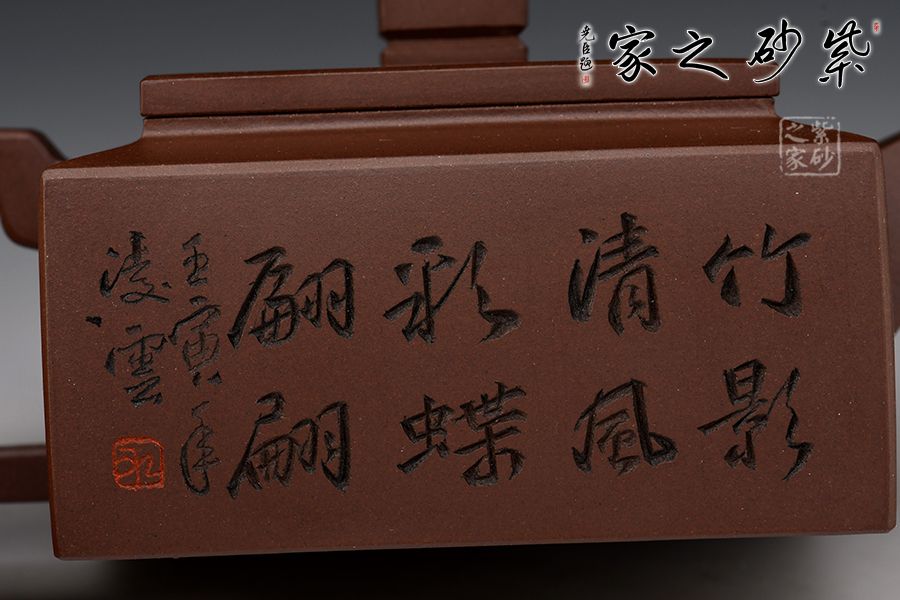 紫砂之家
堯臣題
紫砂之家
竹影
清風
彩蝶
翩翩
壬寅年
凌雲